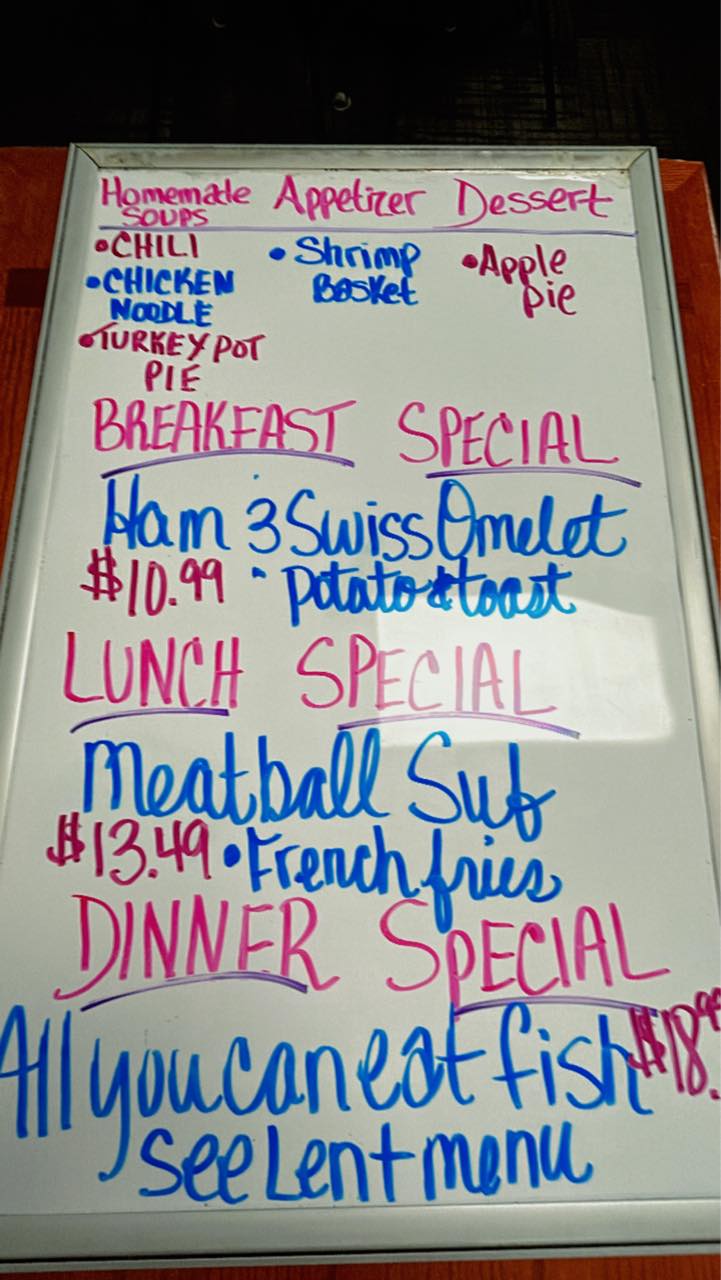 Homemade Appetizer Dessert
SOUPS
•CHILI
•CHICKEN
NOODLE
•TURKEY POT
PIE
•Shrimp
Basket
•Apple
pie
BREAKFAST SPECIAL
Ham & Swiss Omelet
$10.99 • Potato & toast
LUNCH SPECIAL
Meatball Sub
$13.49 • French fries
DINNER SPECIAL
All you can eat fish $18.99
See Lent menu